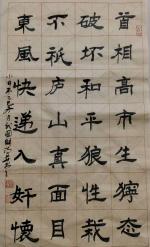 首相高市生獰態
破坏和平狼性栽
不祇庐山真面目
東風快递入奸懷